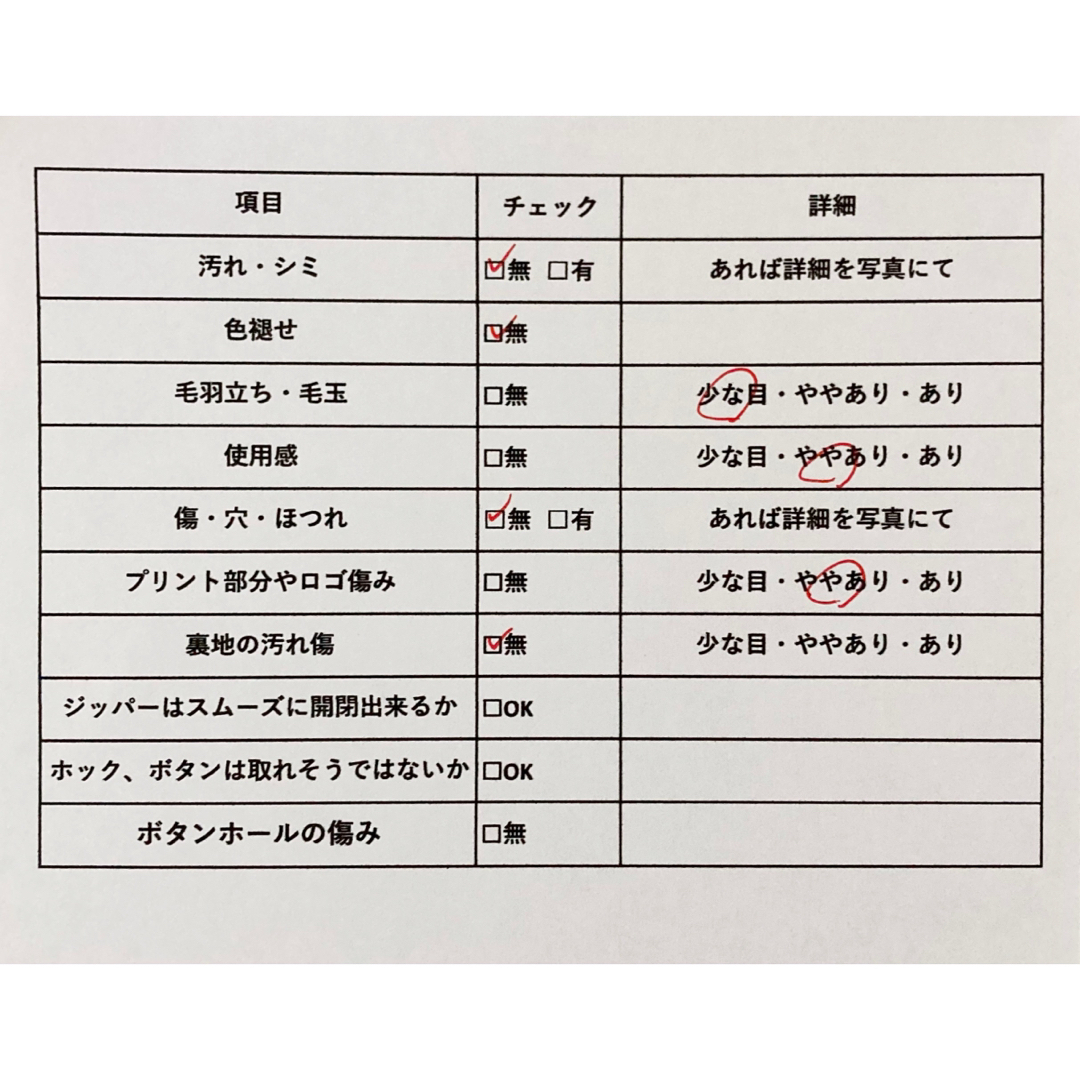 項目 チェック 詳細
汚れ・シミ ☑無 □有 あれば詳細を写真にて
色褪せ ☑無
毛羽立ち・毛玉 □無 少な目・ややあり・あり
使用感 □無 少な目・ややあり・あり
傷・穴・ほつれ ☑無 □有 あれば詳細を写真にて
プリント部分やロゴ傷み □無 少な目・ややあり・あり
裏地の汚れ傷 ☑無 少な目・ややあり・あり
ジッパーはスムーズに開閉出来るか □OK
ホック、ボタンは取れそうではないか □OK
ボタンホールの傷み □無